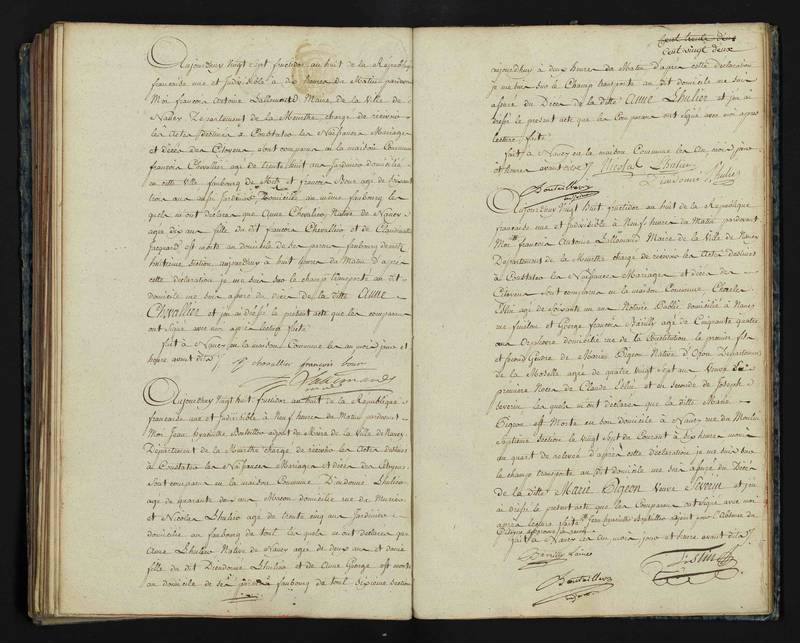 Aujourdhuy Vingt Sept fructidor an huit de la République
françoise une et Indivisible à dix heures du Matin pardevant
Moi françois Antoine Lallemand Maire de la Ville de
Nancy Département de la Meurthe chargé de recevoir
les Actes destinés à Constater les Naissances Mariages
et décès des Citoyens sont comparus en la maison Commune
françois Chevallier agé de trente huit ans Jardinier domicilié
en cette Ville faubourg de Metz et françois Bour agé de
trois ans aussi Jardinier domicilié au même faubourg les
quels m'ont déclaré que Anne Chevalier Native de Nancy
agée dix ans fille du dit françois Chevallier et de Claudinette
Jacquard est morte au domicile de ses parens faubourg de Metz
huitieme Section aujourdhuy à huit heures du Matin d'après
cette déclaration je me suis sur le champ transporté au dit
domicile me suis assuré du décès de la ditte Anne
Chevallier et j'ai dressé le present acte que les comparans
ont signé avec moi après lecture faite
fait à Nancy en la maison Commune les an mois jour et
heure avant dits
f chevallier françois bour
Lallemand
Aujourdhuy Vingt huit fructidor an huit de la République
françoise une et Indivisible à Neuf heures du Matin pardevant
Moi Jean hyacinthe Boutaillou adjoint du Maire de la Ville de Nancy
Département de la Meurthe chargé de recevoir les Actes destinés
à Constater les Naissances Mariages et décès des Citoyens
Sont comparus en la maison Commune Dieudonné Lhulier
agé de quarante deux ans Macon domicilié rue de
et Nicolas Lhulier agé de trente cinq ans Jardinier
domicilié au faubourg de toul les quels m'ont déclaré que
Anne Lhulier Native de Nancy agée de deux ans et demi
fille du dit Dieudonné Lhulier et de Anne George est morte
au domicile de ses faubourg de toul Sixieme Section
Cent trente deux
Cent vingt deux
aujourdhuy à deux heures du Matin d'après cette déclaration
je me suis sur le Champ transporté au dit domicile me suis
assuré du Décès de la ditte Anne Lhulier et j'ai
dressé le present acte que les Comparans ont signé avec moi après
lecture faite
fait à Nancy en la maison Commune les An mois jour
et heure avant dits Nicolas Lhulier
Dieudonné Lhulie
Boutaillou
Aujourdhuy Vingt huit fructidor an huit de la République
françoise une et indivisible à Neuf heures du Matin pardevant
Moi françois Antoine Lallemand Maire de la Ville de Nancy
Département de la Meurthe chargé de recevoir les Actes destinés
à Constater les Naissances Mariages et décès des
Citoyens sont comparus en la maison Commune Charles
agé de Soixante un ans Notaire Public domicilié à Nancy
et George françois Bailly agé de Cinquante quatre
ans domicilié rue de la Constitution le premier fils
et second Gendre de Marie Pigeon Native Département
de la Moselle agée de quatre vingt sept ans Veuve En
premiere Noces de Claude et en Seconde de Joseph
Severin les quels m'ont déclaré que la ditte Marie
Pigeon est Morte en son domicile à Nancy rue du Moulin
Septieme Section le vingt Sept du Courant à dix heures moins
un quart de relevée d'après cette déclaration je me suis sur
le champ transporté au dit domicile me suis assuré du Décès
de la ditte Marie Pigeon Veuve Severin et j'ai
dressé le present acte que les Comparans ont Signé avec moi
après lecture faite Jean hyacinthe Boutaillou adjoint pour l'Absence du
fait à Nancy les An mois jour et heure avant dits
Bailly
Boutaillou